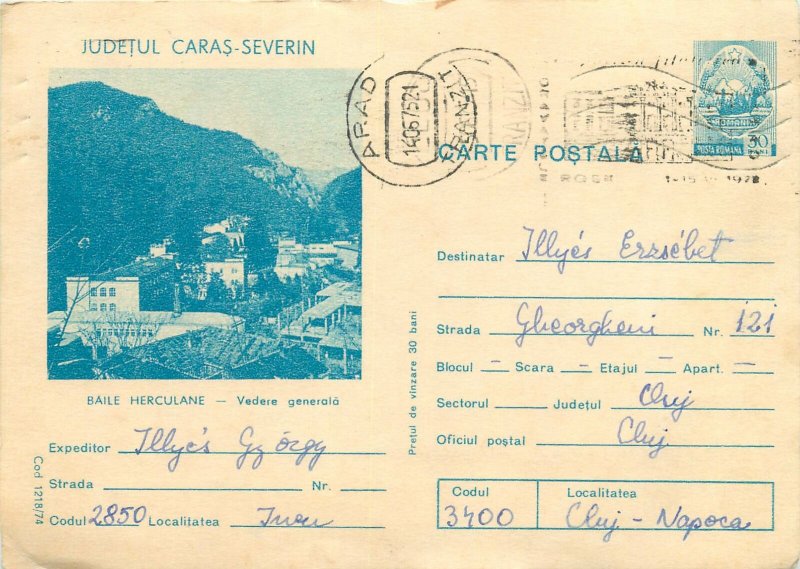 JUDEȚUL CARAȘ-SEVERIN
BĂILE HERCULANE — Vedere generală
Expeditor Illyés György
Strada Nr.
Codul 2850 Localitatea Ineu
Cod 1218/74
Prețul de vînzare 30 bani
ARAD
TRANZIT
CARTE POȘTALĂ
ROMANIA
POSTA ROMANA 30 BANI
Destinatar Illyés Erzsébet
Strada Gheorgheni Nr. 121
Blocul — Scara — Etajul — Apart. —
Sectorul Județul Cluj
Oficiul poștal Cluj
Codul Localitatea
3400 Cluj - Napoca